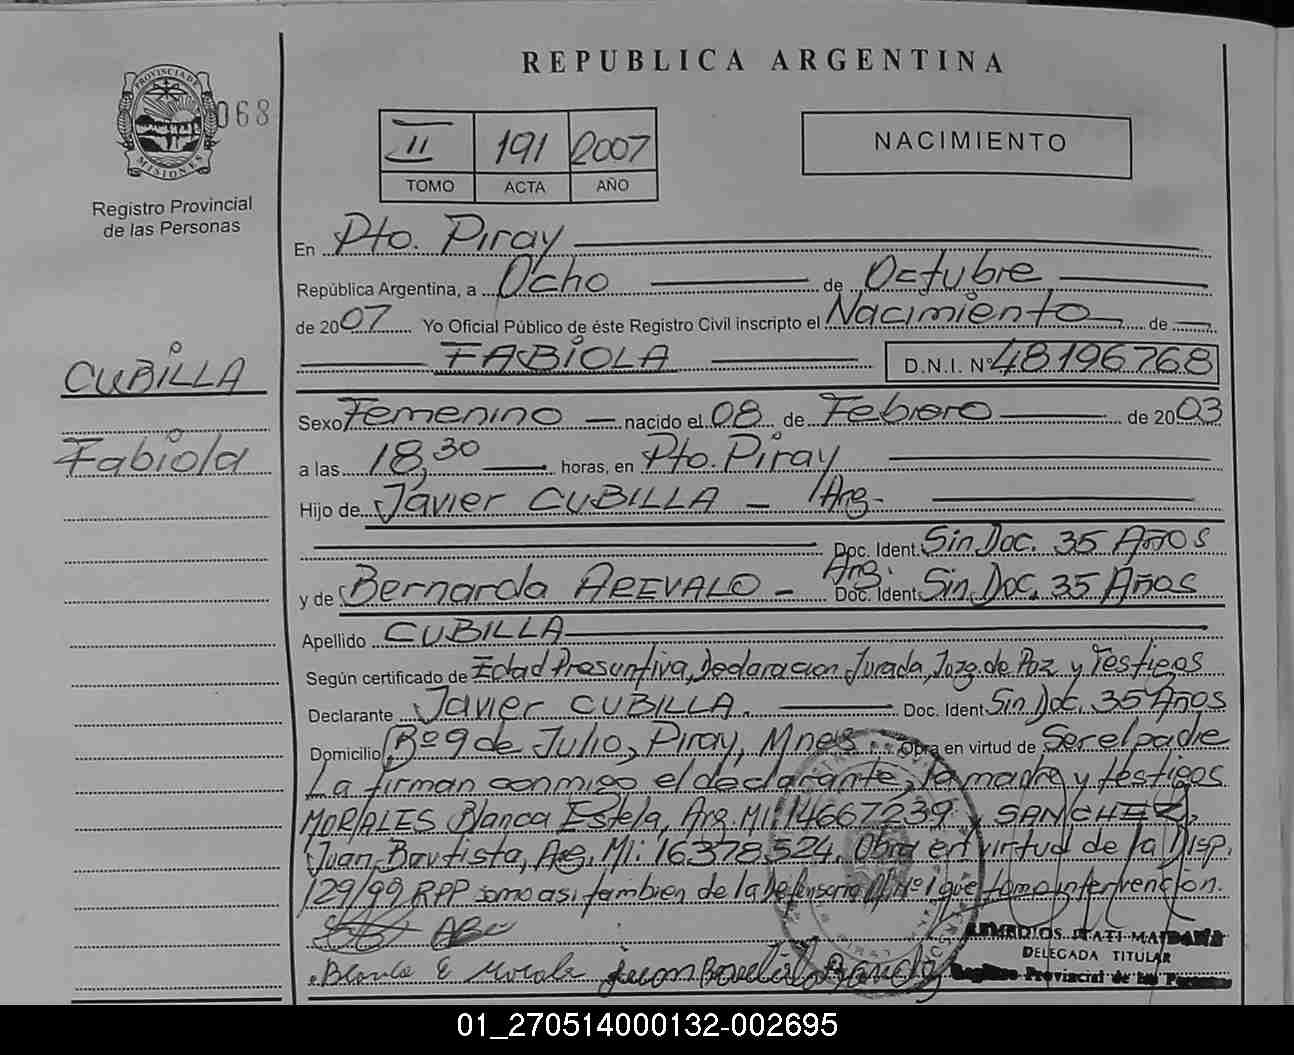 REPUBLICA ARGENTINA
PROVINCIA DE MISIONES
068
Registro Provincial
de las Personas
II 191 2007
TOMO ACTA AÑO
NACIMIENTO
En Pto. Piray
República Argentina, a Ocho de Octubre
de 2007 Yo Oficial Público de éste Registro Civil inscripto el Nacimiento de
FABIOLA D.N.I. Nº 48196768
CUBILLA
Fabiola
Sexo Femenino nacido el 08 de Febrero de 2003
a las 18,30 horas, en Pto. Piray
Hijo de Javier CUBILLA - Arg.
Doc. Ident. Sin Doc. 35 Años
y de Bernarda AREVALO - Arg. Doc. Ident. Sin Doc. 35 Años
Apellido CUBILLA
Según certificado de Edad Presuntiva, Declaracion Jurada, Juzg. de Paz y Testigos
Declarante Javier CUBILLA. Doc. Ident Sin Doc. 35 Años
Domicilio Bº 9 de Julio, Piray, Mnes. Obra en virtud de Ser el padre
La firman conmigo el declarante, la madre y testigos
MORALES Blanca Estela, Arg. MI: 14667239, SANCHEZ,
Juan Bautista, Arg. MI: 16378524. Obra en virtud de la Disp.
129/99 RPP como asi tambien de la Defensoria Nº 1 que tomo intervención.
ABC
Blanca E Morale Juan Bautista
DELEGADA TITULAR
Registro Provincial de las Personas
01_270514000132-002695